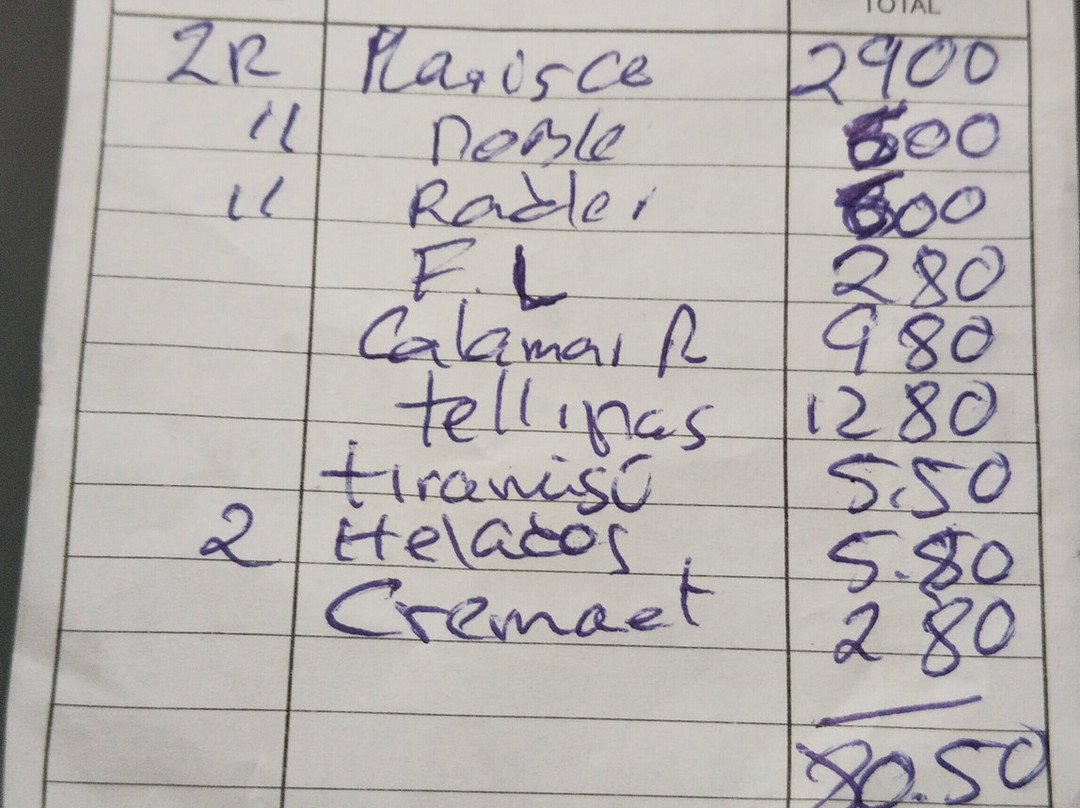 TOTAL
2R Marisco 2900
" Doble 600
" Radler 600
F.L 280
Calamar R 980
tellinas 1280
tiramisú 5.50
2 Helados 5.80
Cremaet 280
80.50